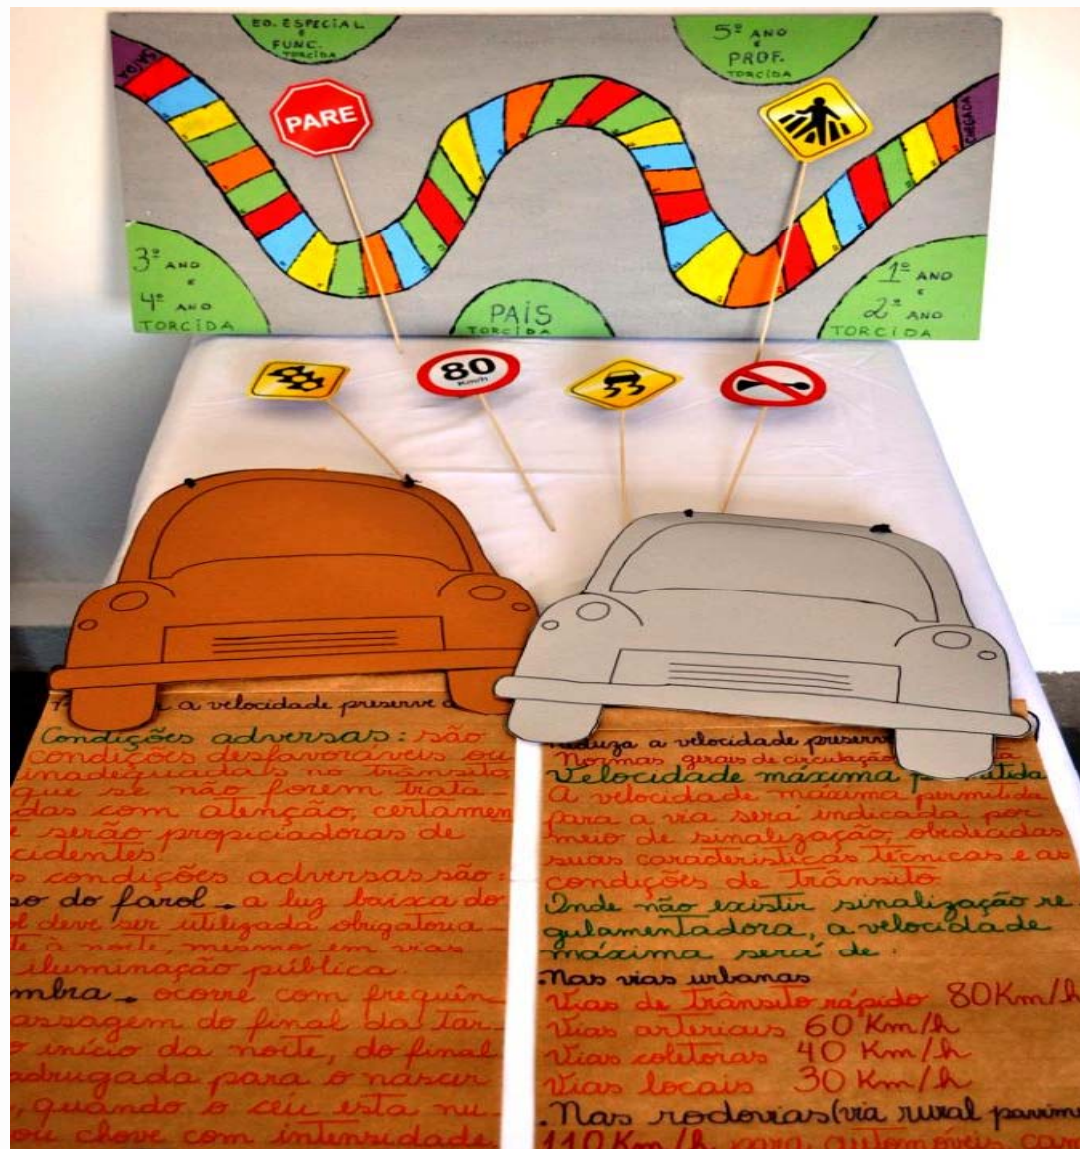 ED. ESPECIAL
E
FUNC.
TORCIDA
5º ANO
E
PROF.
TORCIDA
SAÍDA
PARE
CHEGADA
3º ANO
E
4º ANO
TORCIDA
PAÍS
TORCIDA
1º ANO
E
2º ANO
TORCIDA
80
Km/h
a velocidade preserve
Condições adversas: são
condições desfavoráveis ou
inadequadas no trânsito
que se não forem trata-
das com atenção, certamen
e serão propiciadoras de
cidentes.
s condições adversas são:
so do farol. a luz baixa do
ol deve ser utilizada obrigatoria-
te à noite mesmo em vias
iluminação pública
mbra. ocorre com frequên
assagem do final da tar-
o início da noite, do final
adrugada para o nascer
, quando o céu esta nu-
ou chove com intensidade
reduza a velocidade preserv
Normas gerais de circulação
Velocidade máxima permitida
A velocidade máxima permitida
para a via será indicada por
meio de sinalização, obedecidas
suas características técnicas e as
condições de trânsito
Onde não existir sinalização re
gulamentadora, a velocidade
máxima será de:
.Nas vias urbanas
Vias de trânsito rápido 80Km/h
Vias arteriais 60 Km/h
Vias coletoras 40 Km/h
Vias locais 30 Km/h
.Nas rodovias (via rural pavime
110 Km/h para automóveis cam